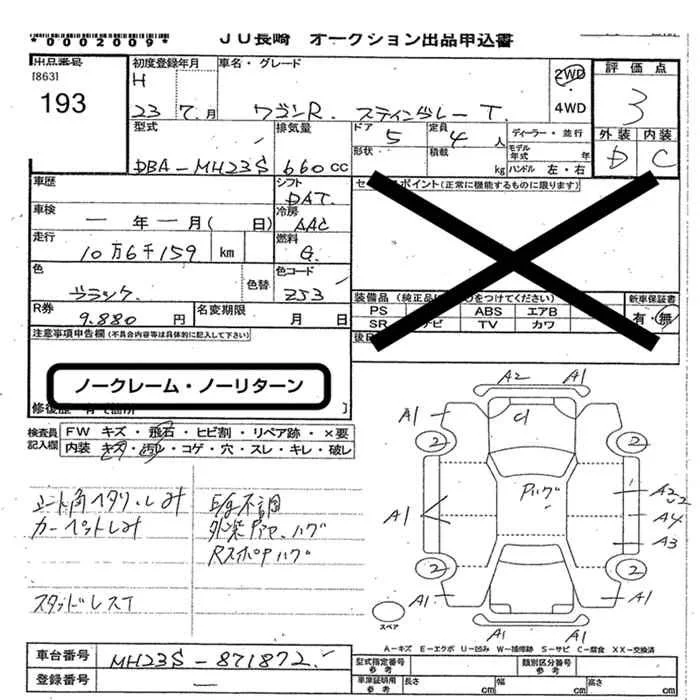 *0002009*
JU長崎 オークション出品申込書
出品番号
[863]
193
初度登録年月
H
23 7 月
車名・グレード
ワゴンR スティングレー T.
2WD
4WD
評価点
3
外装 内装
D C
型式
DBA-MH23S
排気量
660 CC
ドア 5
定員 4 人
形状
積載 kg
ディーラー・並行
モデル年式 年
ハンドル 左・右
車歴
シフト
DAT.
車検
一 年 一 月( 日)
冷房
AAC
走行
10万6千159 km
燃料
G.
色
ブラック.
色替
色コード
Z53
R券
9.880 円
名変期限
月 日
セ ポイント(正常に機能するものに限ります)
装備品 (純正品 をつけてください)
PS ABS エアB
SR ナビ TV カワ
新車保証書
有・無
注意事項申告欄(不具合内容等は具体的に記入して下さい)
ノークレーム・ノーリターン
検査員
記入欄
FW キズ・飛石・ヒビ割・リペア跡・×要
内装 キズ・汚レ・コゲ・穴・スレ・キレ・破レ
シート角ヘタリ・しみ
カーペットしみ
スタッドレスT
E/g不調
Rスポ ハゲ
A2 A1
A1 C1
2 2
ハゲ
A2
U2
A1 A4
A3
2 2
A1 A1
A1 A1
スペア
A-キズ E-エクボ U-凹み W-補修跡 S-サビ C-腐食 XX-交換済
車台番号
MH23S-871872.
登録番号
型式指定番号
参考
類別区分番号
参考
車庫証明用
参考
長さ cm 幅 cm 高さ cm